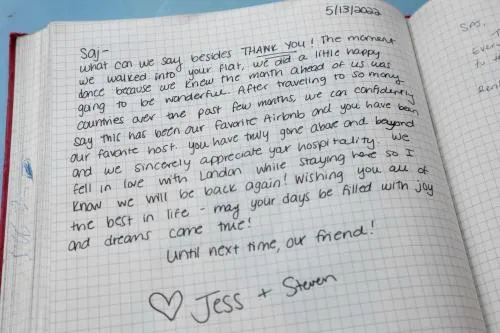 5/13/2022
Saj-
What can we say besides THANK YOU! The moment
we walked into your flat, we did a little happy
dance because we knew the month ahead of us was
going to be wonderful. After traveling to so many
countries over the past few months, we can confidently
say this has been our favorite Airbnb and you have been
our favorite host. You have truly gone above and beyond
and we sincerely appreciate your hospitality. We
fell in love with London while staying here so I
know we will be back again! Wishing you all of
the best in life - may your days be filled with joy
and dreams come true!
Until next time, our friend!
♡ Jess + Steven